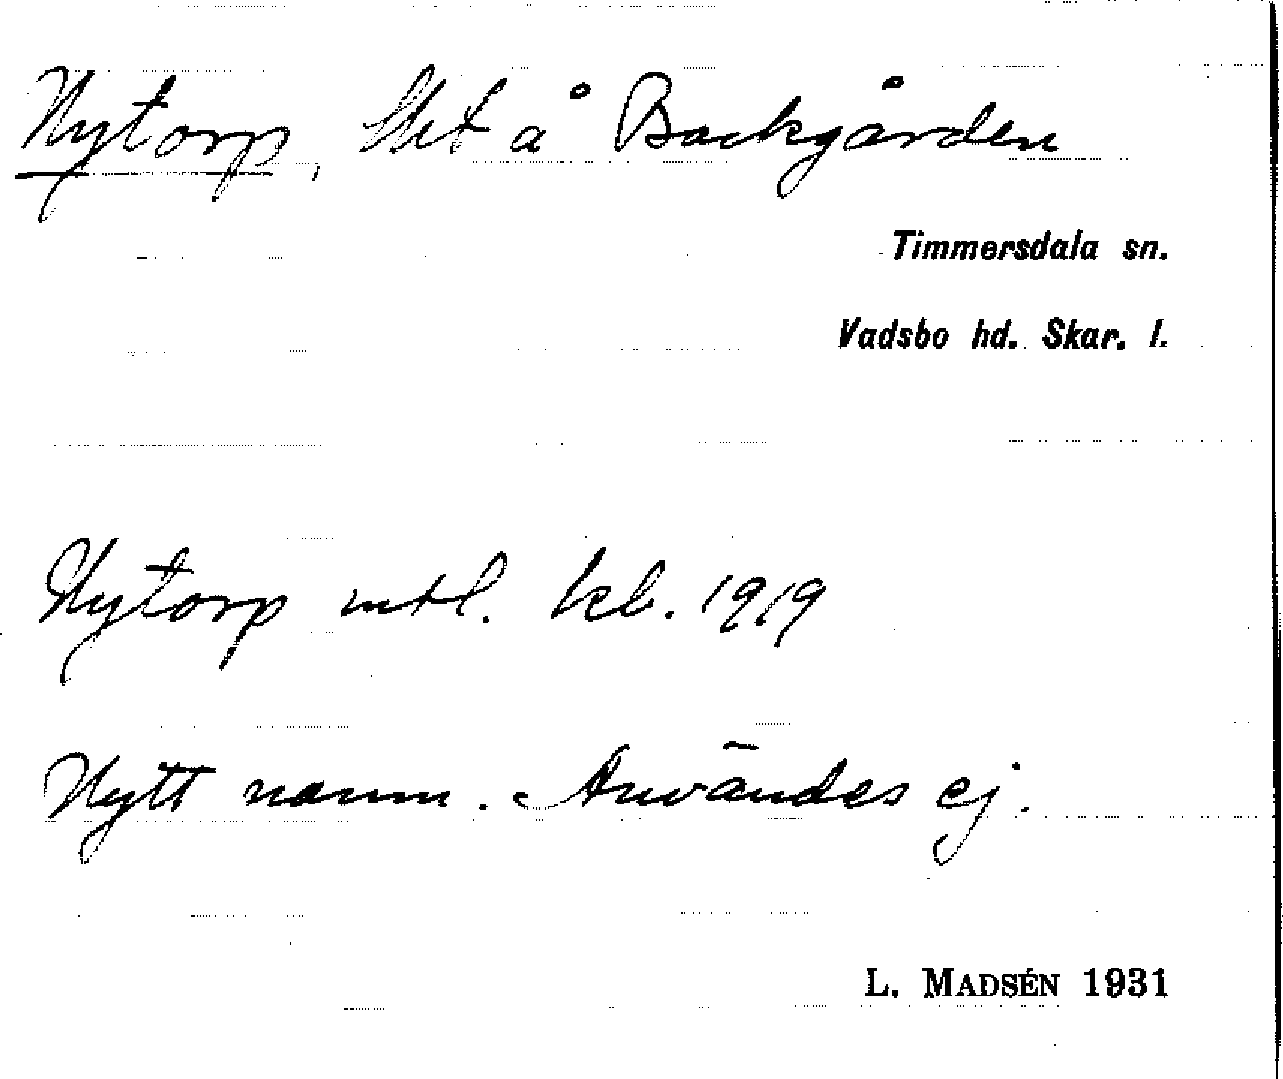 Nytorp, Hlt å Backgården
Timmersdala sn.
Vadsbo hd. Skar. l.
Nytorp mtl. kl. 1919
Nytt namn. Användes ej.
L. MADSÉN 1931